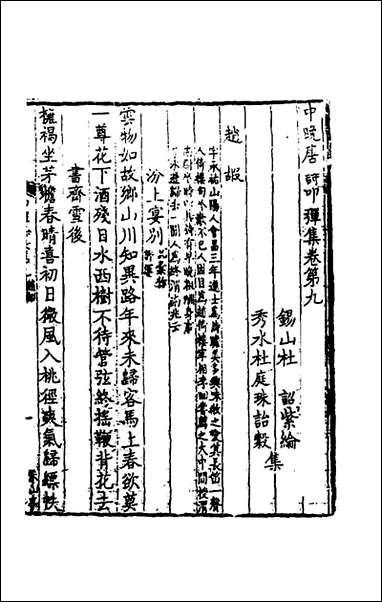 中晚唐詩叩彈集卷第九
錫山杜　詔紫綸
秀水杜庭珠詒穀
集
趙嘏
字承祐山陽人會昌三年進士為詩贍美多興味牧之愛其長笛一聲
人倚樓句吟歎不已人因目為趙倚樓大中間授渭
汾上宴別
雲物如故鄉山川知異路年來未歸客馬上春欲莫
一尊花下酒殘日水西樹不待管弦終搖鞭背花去
書齋雪後
擁褐坐茅簷春晴喜初日微風入桃徑爽氣歸縹帙